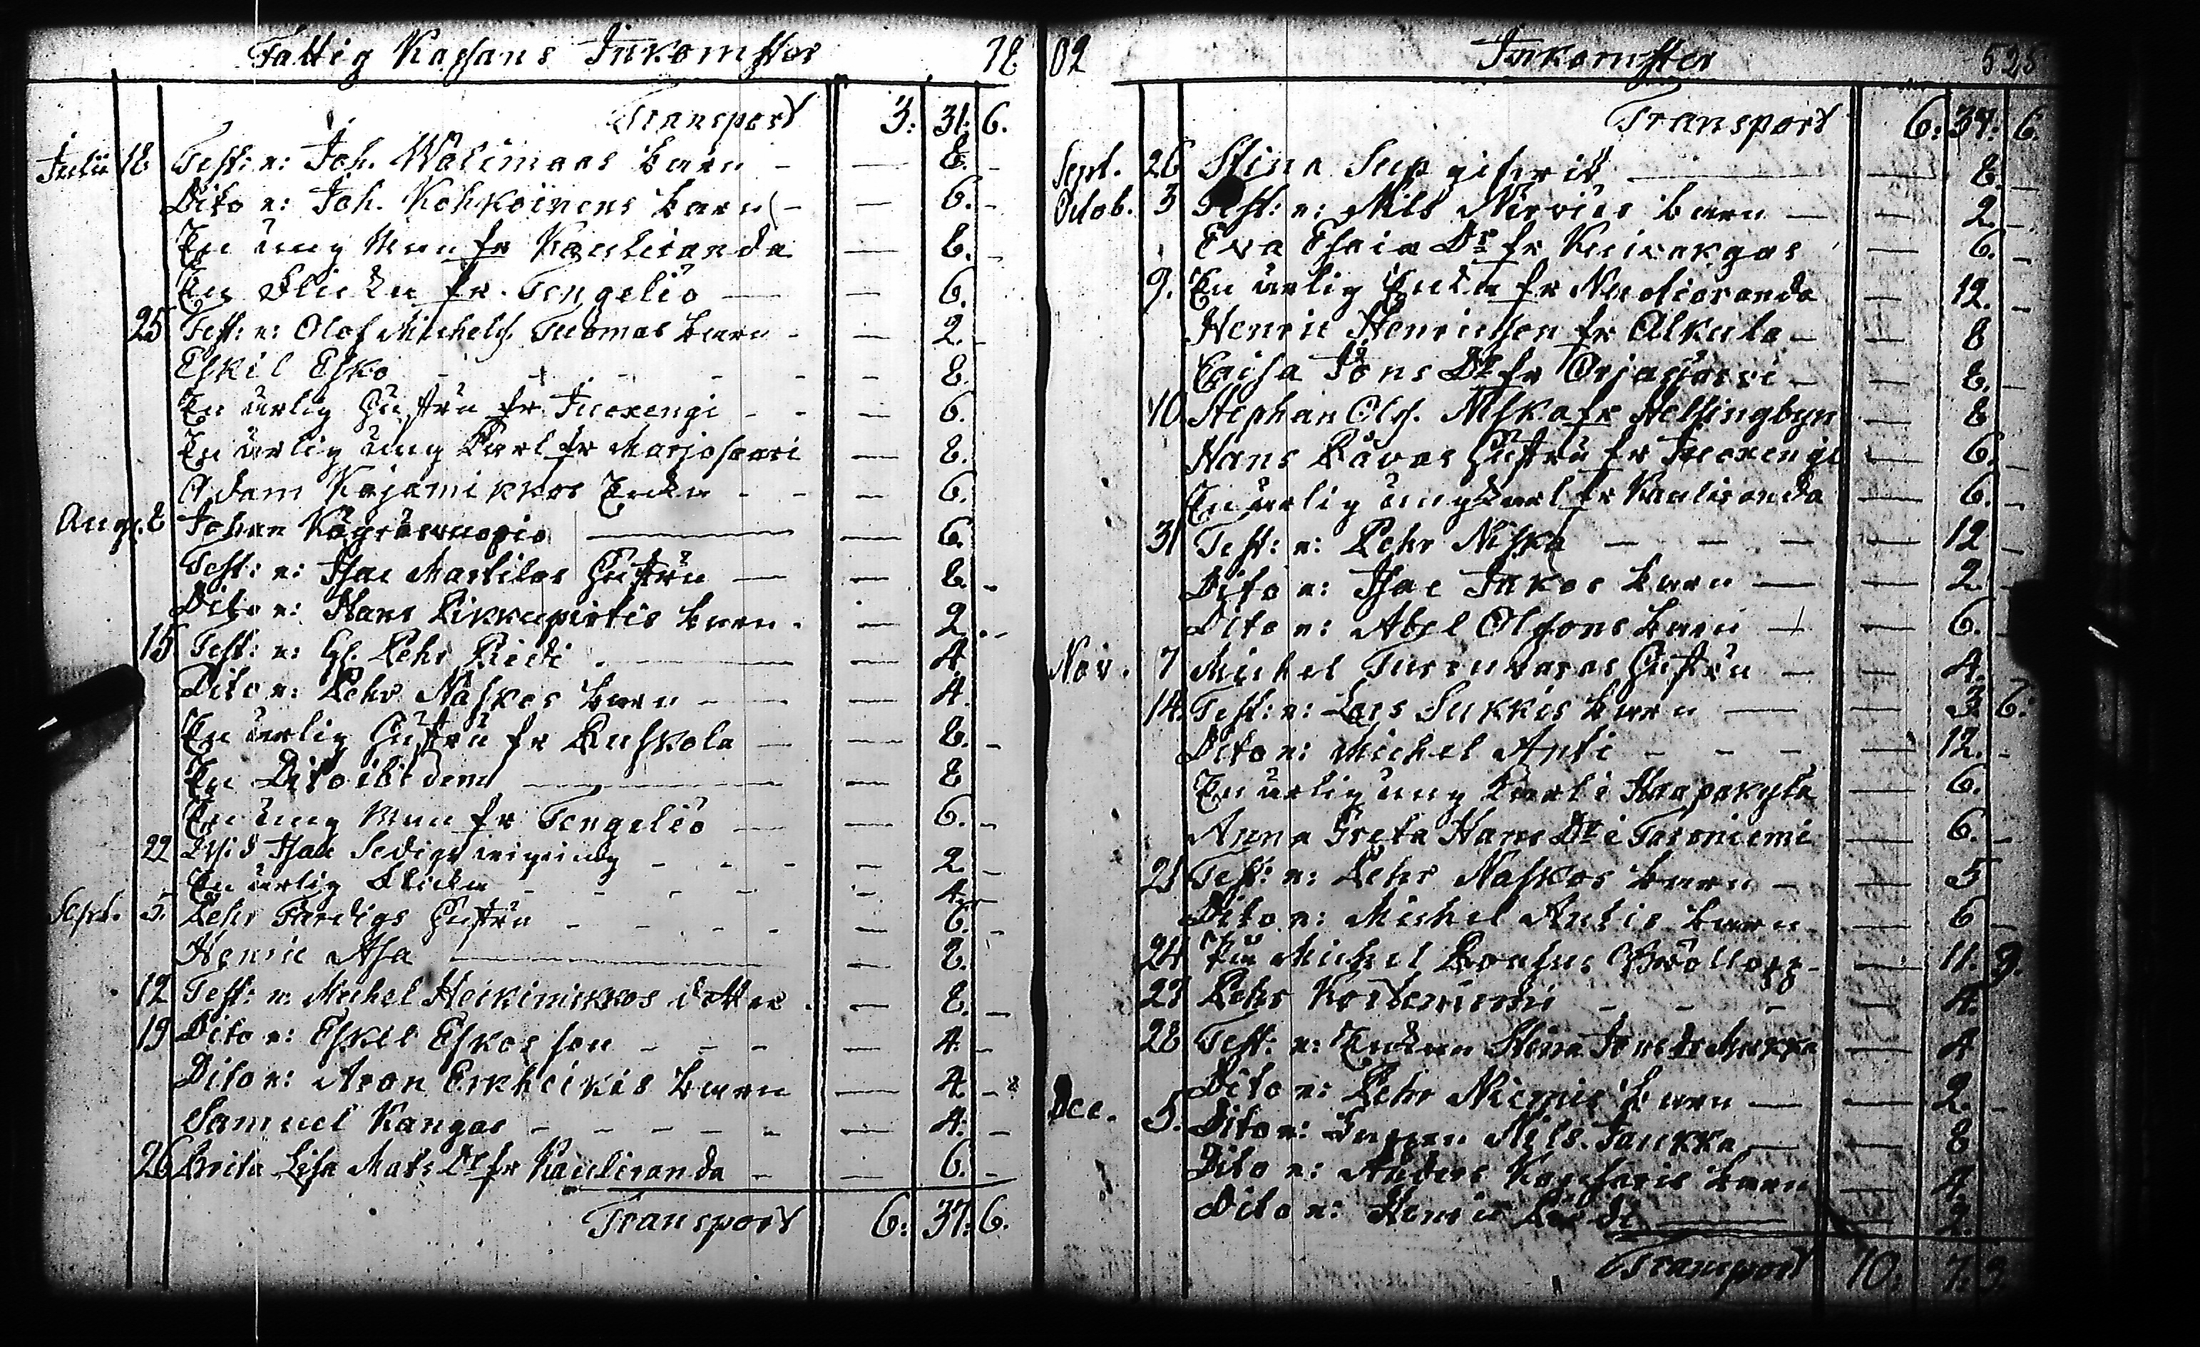 Fattig Kassans Inkomster 18
Transport 3: 31: 6.
Julii 18 Test: n: Joh. Wälimaas barn — 8. -
Dito n: Joh. Kohkoinens barn — 6. -
En ung Man fr Kauliranda — 6. -
En Flicka fr. Tengeliö — 6.
25 Test: n: Olof Michels. Tuomas barn — 2. -
Eskil Esko — 8.
En ärlig Hustru fr. Juoxengi — 6.
En ärlig ung Karl fr Marjosaari — 8.
Adam Kojamikkos Enka — 6.
Aug. 8 Johan — 6.
Test: n: Isac Martilas Hustru — 8. -
Dito n: Hans Pikkupirtis barn — 2. -
15 Test: n: Gl. Pehr — 4.
Dito n: Pehr Naskos barn — 4.
En ärlig Hustru fr Ruskola — 8. -
En Dito ibidem — 8
En ung Man fr Tengeliö — 6. -
22 Wid Isac — 2. -
En ärlig Flicka — 4.
Sept. 5. Pehr Tardigs Hustru — 6. -
Henric Asa — 8.
12 Test: n. Michel Heikimikkos dotter — 8. -
19 Dito n: Eskil Eskos son — 4. -
Dito n: Aron Erkheikis barn — 4. -
Samuel Kangas — 4. -
26 Brita Lisa Mats Dr fr Kauliranda — 6. -
Transport 6: 37: 6.
02 Inkomster 525
Transport 6: 37: 6.
Sept. 26 Stina — 8. -
Octob. 3 Test: n: Nils barn — 2. -
Eva Esaia Dr fr Kuivakgas — 6. -
9. En ärlig Enka fr — 12. -
Henric Henricsson fr Alkula — 8
Caisa Jöns Dr fr Orjasjärvi — 8. -
10 Stephan Ols. Niska fr Helsingbyn — 8
Hans Lavas Hustru fr Juoxengi — 6. -
En ärlig ung Karl fr Kauliranda — 6. -
31 Test: n: Pehr Niska — 12 -
Dito n: Isac Inkos barn — 2
Dito n: Abel Olssons barn — 6.
Nov. 7 Michel Hustru — 4.
14. Test: n: Lars Sukkis barn — 3 6.
Dito n: Michel Anti — 12. -
En ärlig ung Karl i Haapakylä — 6.
Anna Greta Hans Dr i Torniemi — 6. -
21 Test: n: Pehr Naskos barn — 5
Dito n: Michel Antis barn — 6 -
24 På Michel Bröllopp — 11. 9.
27 Pehr Koiveniemi — 4.
28 Test: n: Enkan Stina Jöns dr — 4
Dito n: Pehr Niemis barn — 2. -
Dec. 5. Dito n: Nils. Jaukka — 8
Dito n: Anders barn — 4.
Dito n: Henric — 2.
Transport 10: 7: 9.